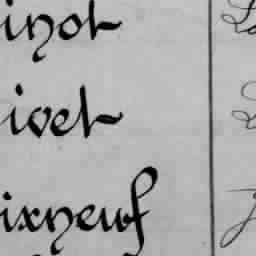 inot
ivet
ixneuf